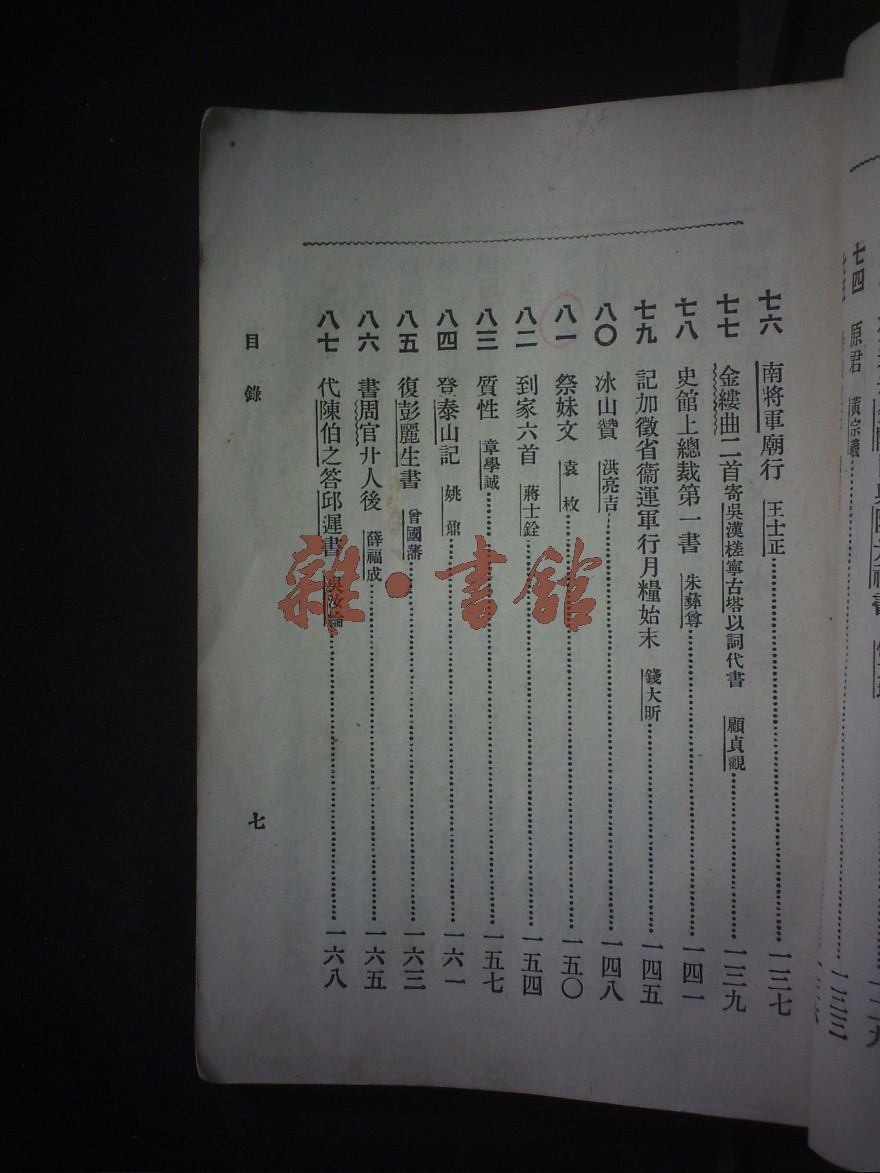 七四 原君 黃宗羲
七六 南將軍廟行 王士正 一三七
七七 金縷曲二首寄吳漢槎寧古塔以詞代書 顧貞觀 一三九
七八 史館上總裁第一書 朱彝尊 一四一
七九 記加徵省衞運軍行月糧始末 錢大昕 一四五
八〇 冰山贊 洪亮吉 一四八
八一 祭妹文 袁枚 一五〇
八二 到家六首 蔣士銓 一五四
八三 質性 章學誠 一五七
八四 登泰山記 姚鼐 一六一
八五 復彭麗生書 曾國藩 一六三
八六 書周官廾人後 薛福成 一六五
八七 代陳伯之答邱遲書 吳汝綸 一六八
目錄
七
雜·書館